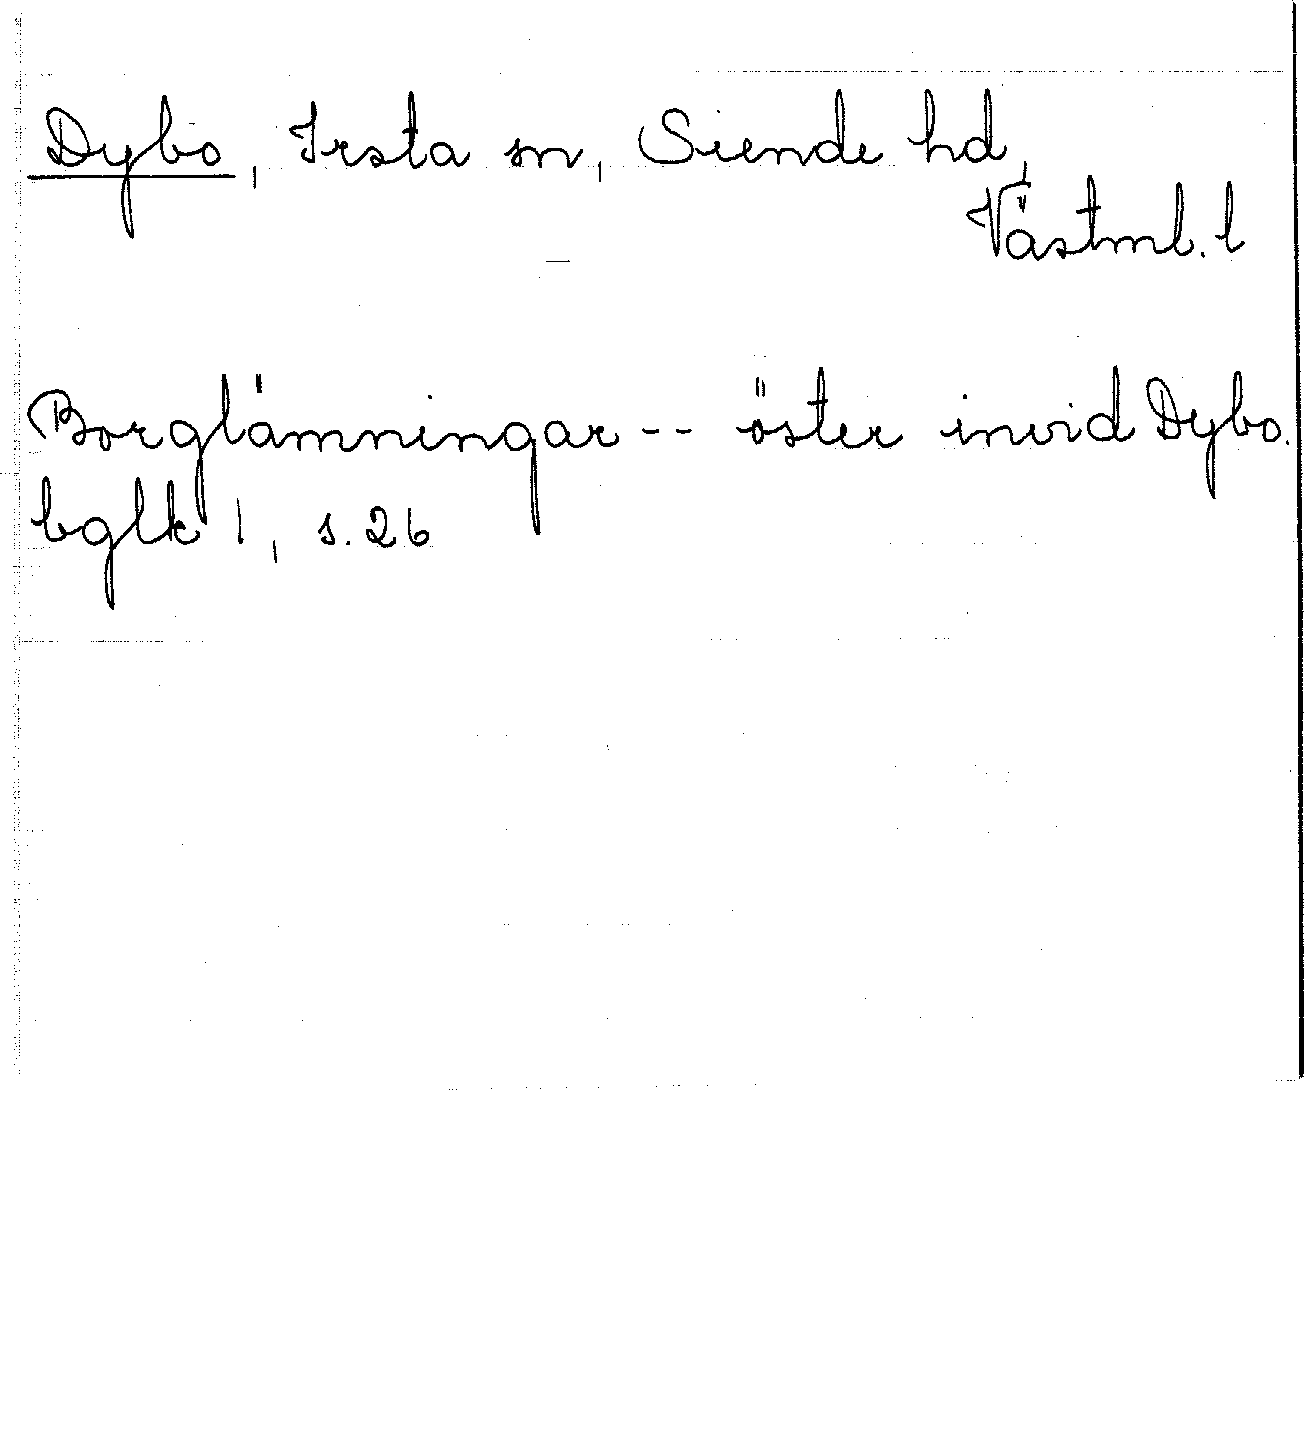 Dybo, Irsta sn, Siende hd,
Västml. l
Borglämningar -- öster invid Dybo.
bglk 1, s. 26